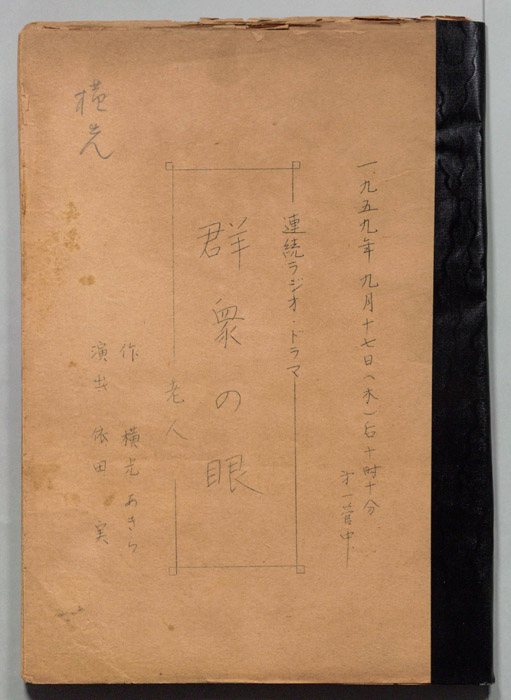 一九五九年九月十七日(木)后十時十分
連続ラジオ・ドラマ
群衆の眼
老人
作 横光あきら
演出 依田実
横光